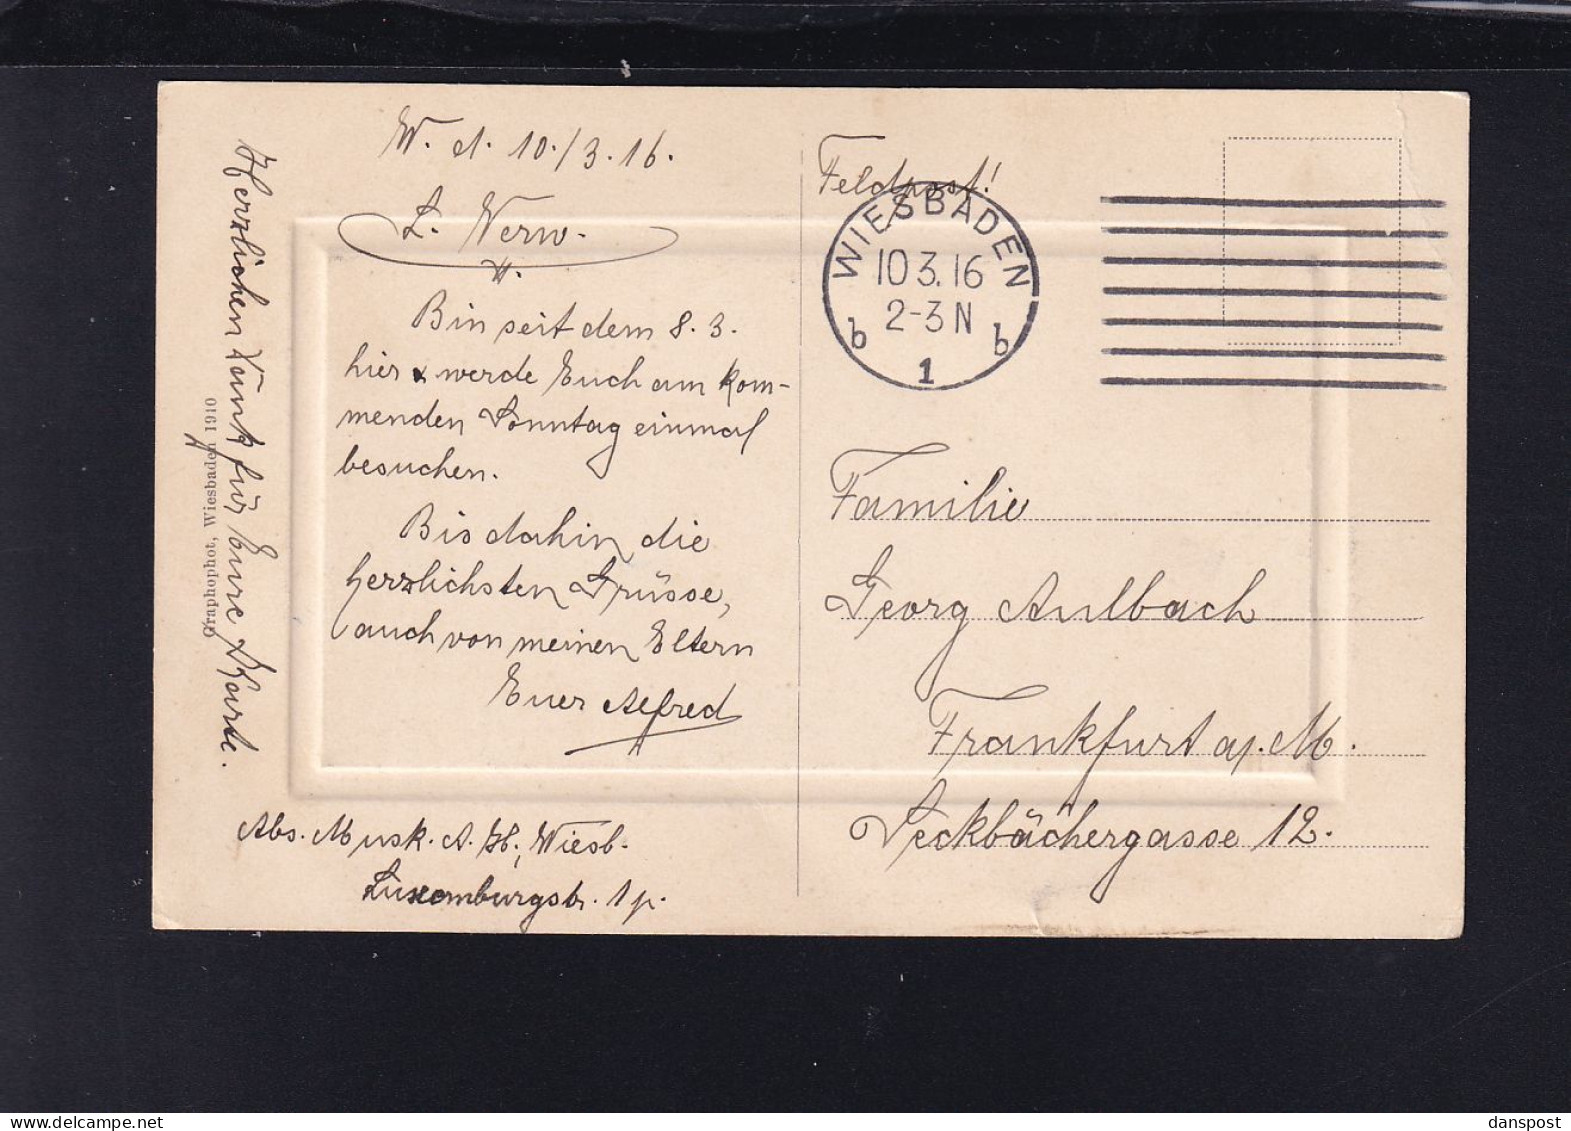 W. d. 10./3.16.
L. Verw.
Bin seit dem 8.3.
hier & werde Euch am kom-
menden Sonntag einmal
besuchen.
Bis dahin die
herzlichsten Grüsse,
auch von meinen Eltern
Euer Alfred
Abs. Musk. A. H., Wiesb.
Luxemburgstr. 1 p.
Herzlichen Dank für Eure Karte.
Graphophot, Wiesbaden 1910
Feldpost!
WIESBADEN
10 3. 16
2-3 N
b b
1
Familie
Georg Aulbach
Frankfurt a/. M.
Seckbächergasse 12.
danspost